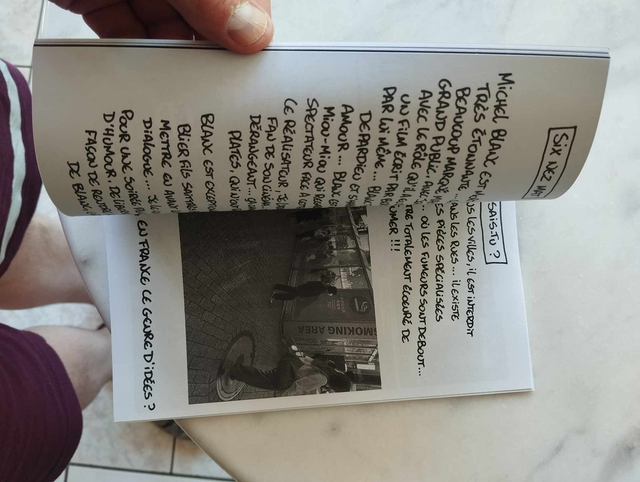 SIX NEZ
MICHEL BLANC EST
TRÈS ÉTONNANTE
BEAUCOUP MARQUÉ
GRAND PUBLIC, AVEC
AVEC LE RÔLE QU'IL A
UN FILM ÉCRIT PAR
PAR LUI MÊME... BLANC
DEPARDIEU ET
AMOUR... BLANC
MIOU-MIOU QUI
SPECTATEUR FACE À
CE RÉALISATEUR. JE
FAN DE SON CINÉMA
DÉRANGEANT...
PLATES,
BLANC EST
BLIER FILS
METTRE EN AVANT
DIALOGUE...
POUR UNE SOIRÉE
D'HUMOUR, DE
FAÇON DE
DE BLANC
SAIS-TU ?
LES VILLES, IL EST INTERDIT
LES RUES... IL EXISTE
PIÈCES SPÉCIALISÉES
... OÙ LES FUMEURS SONT DEBOUT...
TOTALEMENT ÉCOEURÉ DE
UMER !!!
SMOKING AREA
EN FRANCE CE GENRE D'IDÉES ?